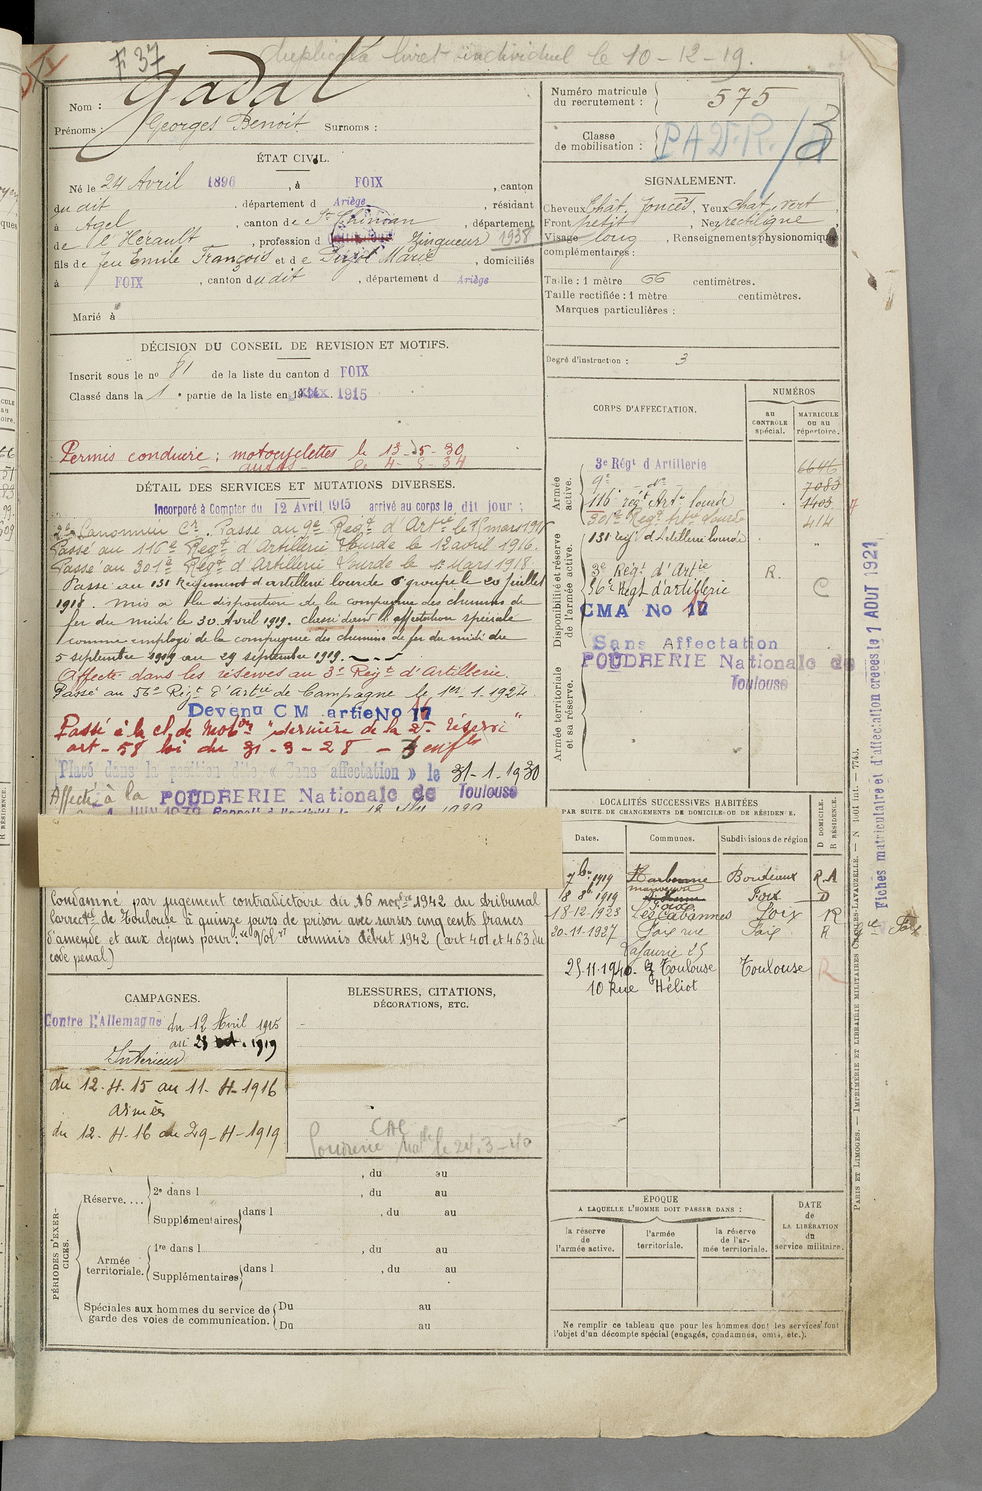 F 37
duplicata livret individuel le 10-12-19.
Nom : Gadal
Prénoms : Georges Benoit Surnoms :
Numéro matricule du recrutement : 575
Classe de mobilisation : P.A.D.R. / 3
ÉTAT CIVIL.
Né le 24 Avril 1896, à FOIX, canton
du dit, département d Ariège, résidant
à Agel, canton de St Chinian, département
de l'Hérault, profession d Zingueur 1938
fils de feu Emile François et de Marie, domiciliés
à FOIX, canton dudit, département d Ariège
Marié à
SIGNALEMENT.
Cheveux Chât. foncés, Yeux Chat. vert
Front petit, Nez rectiligne
Visage long, Renseignements physionomiques
complémentaires :
Taille : 1 mètre 66 centimètres.
Taille rectifiée : 1 mètre centimètres.
Marques particulières :
Degré d'instruction : 3
DÉCISION DU CONSEIL DE REVISION ET MOTIFS.
Inscrit sous le no 81 de la liste du canton d FOIX
Classé dans la 1e partie de la liste en 1915
Permis conduire : motocyclettes le 13-5-30
autos le 4-5-34
DÉTAIL DES SERVICES ET MUTATIONS DIVERSES.
Incorporé à Compter du 12 Avril 1915 arrivé au corps le dit jour ;
2e Canonnier Cr. Passé au 9e Regt d'Artie le 15 mars 1916
Passé au 116e Regt d'Artillerie Lourde le 12 avril 1916.
Passé au 301e Regt d'Artillerie Lourde le 1r Mars 1918
Passé au 131 Régiment d'artillerie lourde 6 groupe le 20 juillet
1918. Mis à la disposition de la compagnie des chemins de
fer du midi le 30 Avril 1919. classé dans l'affectation spéciale
comme employé de la compagnie des chemins de fer du midi du
5 septembre 1919 au 29 septembre 1919.
Affecté dans les réserves au 3e Regt d'Artillerie.
Passé au 56e Regt d'Artie de Campagne le 1er 1.1924.
Devenu C M artie No 17
Passé à la cl. de mobon "dernière de la 2e réserve"
art-58 loi du 31-3-28 - 3 enfts
Placé dans la position dite « Sans affectation » le 31-1-1930
Affecté à la POUDRERIE Nationale de Toulouse
Condamné par jugement contradictoire du 16 novbre 1942 du Tribunal
Correctel de Toulouse à quinze jours de prison avec sursis cinq cents francs
d'amende et aux depens pour : "Vol" commis début 1942 (art 401 et 463 du
code pénal)
CORPS D'AFFECTATION.
NUMÉROS
au CONTRÔLE spécial.
MATRICULE OU au répertoire.
Armée active.
3e Régt d'Artillerie 6646
9e 7083
116e régt Artie lourde 1403
301e Regt Artie Lourde 414
Disponibilité et réserve de l'armée active.
131 regt d'Artillerie lourde
3e Regt d'Artie R.
56e Regt d'artillerie C
CMA No 17
Sans Affectation
POUDRERIE Nationale de
Toulouse
Armée territoriale et sa réserve.
LOCALITÉS SUCCESSIVES HABITÉES
PAR SUITE DE CHANGEMENTS DE DOMICILE OU DE RÉSIDENCE.
Dates. Communes. Subdivisions de région
D DOMICILE. R RÉSIDENCE.
7bre 1919 Narbonne Bordeaux R.A
8 8b 1919 Foix Foix D
18-12-1923 Les Cabannes Foix R
20-11-1927 Foix rue Foix R
Lafaurie 25
25-11-1940 Toulouse Toulouse R
10 Rue Héliot
CAMPAGNES.
Contre l'Allemagne du 12 Avril 1915
au 29 1919
Intérieur
du 12-4-15 au 11-4-1916
Armées
du 12-4-16 au 29-4-1919
BLESSURES, CITATIONS,
DÉCORATIONS, ETC.
CAC
Poudrerie Natle le 24.3-40
PÉRIODES D'EXERCICES.
Réserve.... 2e dans l , du au
, du au
Supplémentaires dans l , du au
Armée territoriale. 1re dans l , du au
Supplémentaires dans l , du au
Spéciales aux hommes du service de garde des voies de communication. Du au
Du au
ÉPOQUE
A LAQUELLE L'HOMME DOIT PASSER DANS :
la réserve de l'armée active.
l'armée territoriale.
la réserve de l'armée territoriale.
DATE de LA LIBÉRATION du service militaire.
Ne remplir ce tableau que pour les hommes dont les services font
l'objet d'un décompte spécial (engagés, condamnés, omis, etc.).
Fiches matriculaire et d'affectation créées le 1 AOUT 1921
PARIS ET LIMOGES. — IMPRIMERIE ET LIBRAIRIE MILITAIRES CHARLES-LAVAUZELLE.